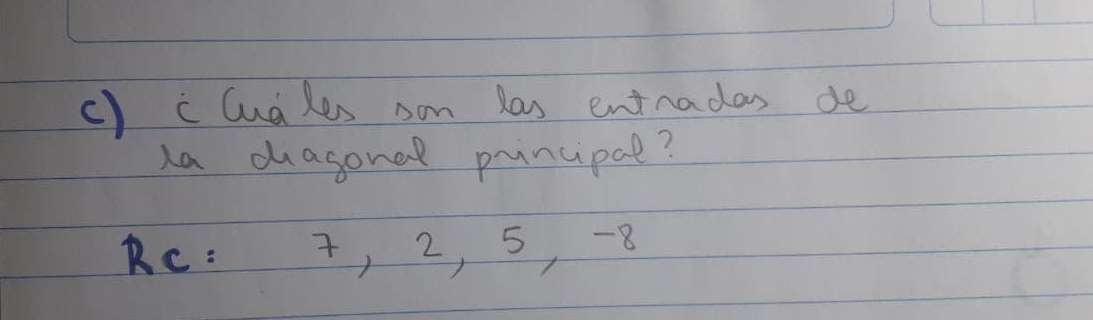 c) ¿Cuáles son las entradas de
la diagonal principal?
Rc: 7, 2, 5, -8